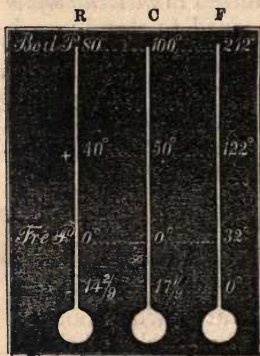 R C F
Boil P. 80 100° 212°
+ 40° 50° 122°
0° 0° 32°
14 2/9 17 0°